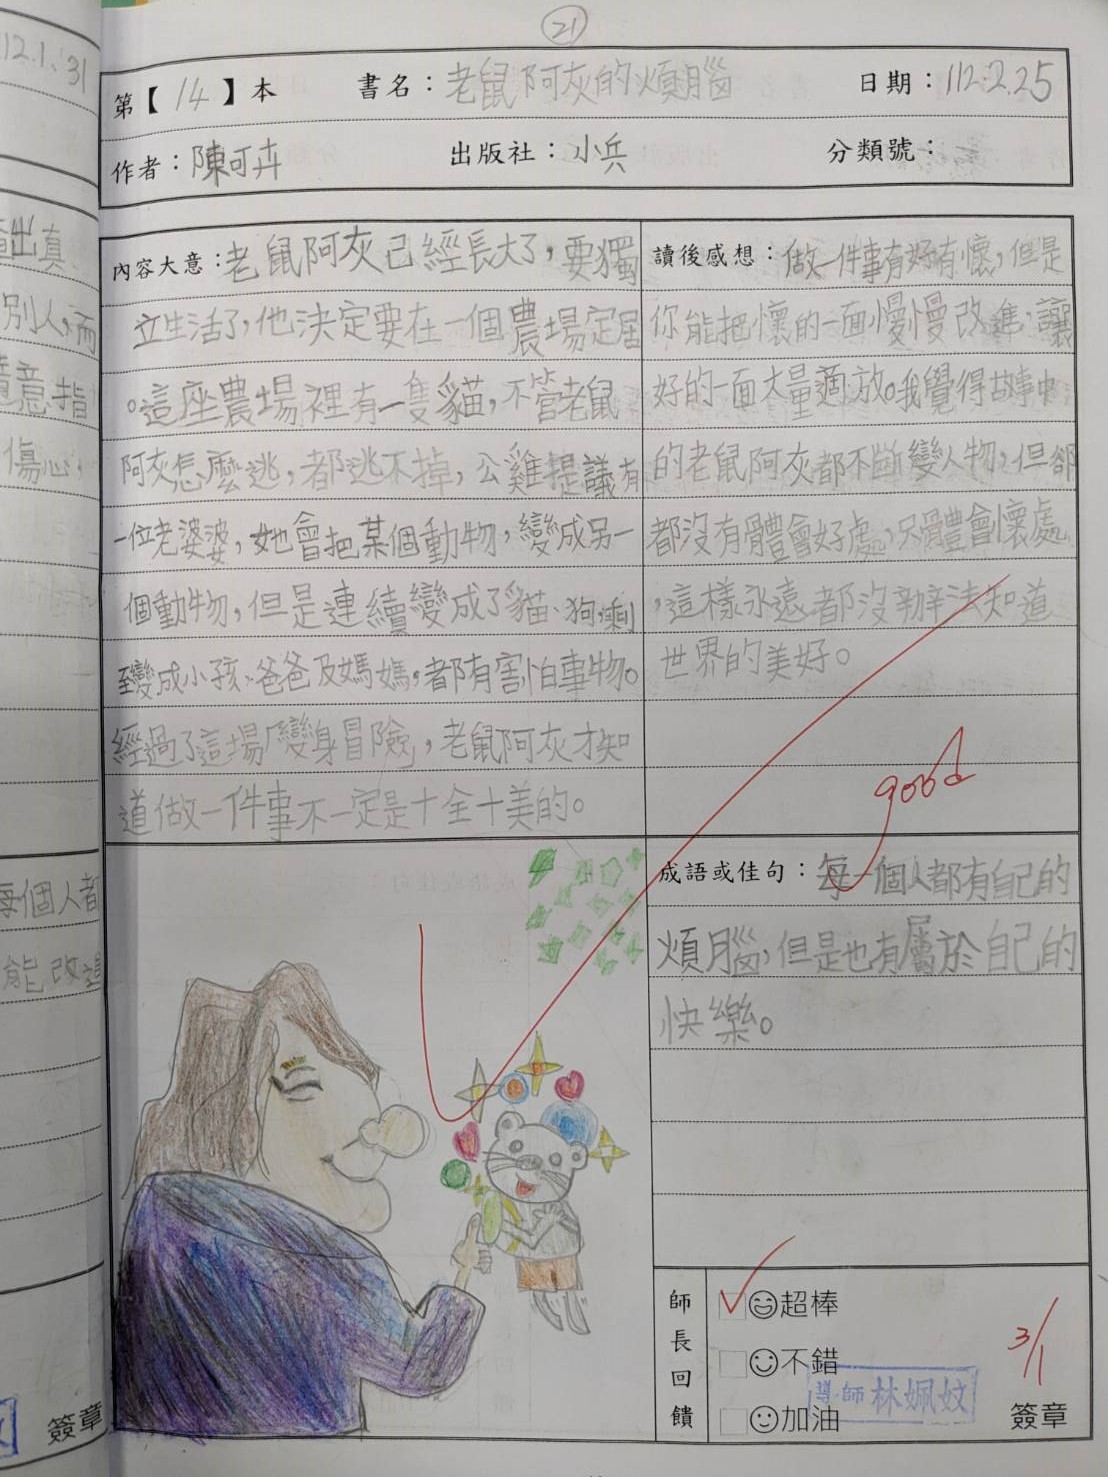 21
112.1.31
第【14】本 書名：老鼠阿灰的煩腦 日期：112.2.25
作者：陳可卉 出版社：小兵 分類號：
出真
別人，而
意指
傷心，
每個人都
能改進
簽章
內容大意：老鼠阿灰已經長大了，要獨
立生活了，他決定要在一個農場定居
。這座農場裡有一隻貓，不管老鼠
阿灰怎麼逃，都逃不掉，公雞提議有
一位老婆婆，她會把某個動物，變成另一
個動物，但是連續變成了貓、狗，剩
至變成小孩、爸爸及媽媽，都有害怕事物。
經過了這場「變身冒險，老鼠阿灰才知
道做一件事不一定是十全十美的。
讀後感想：做一件事有好有懷，但是
你能把懷的一面慢慢改進，讓
好的一面大量適放。我覺得故事中
的老鼠阿灰都不斷變人物，但卻
都沒有體會好處，只體會懷處
，這樣永遠都沒辦法知道
世界的美好。
good
成語或佳句：每一個人都有自己的
煩腦，但是也有屬於自己的
快樂。
師長回饋
超棒
不錯
加油
導師 林姵妏
3/1
簽章